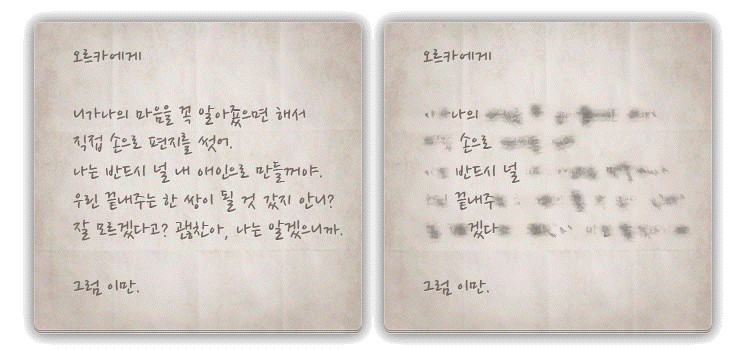 오르카에게
니가나의 마음을 꼭 알아줬으면 해서
직접 손으로 편지를 썻어.
나는 반드시 널 내 애인으로 만들꺼야.
우린 끝내주는 한 쌍이 될 것 갔지 안니?
잘 모르겠다고? 괜찬아, 나는 알겠으니까.
그럼 이만.
오르카에게
나의
손으로
반드시 널
끝내주
겠다
그럼 이만.